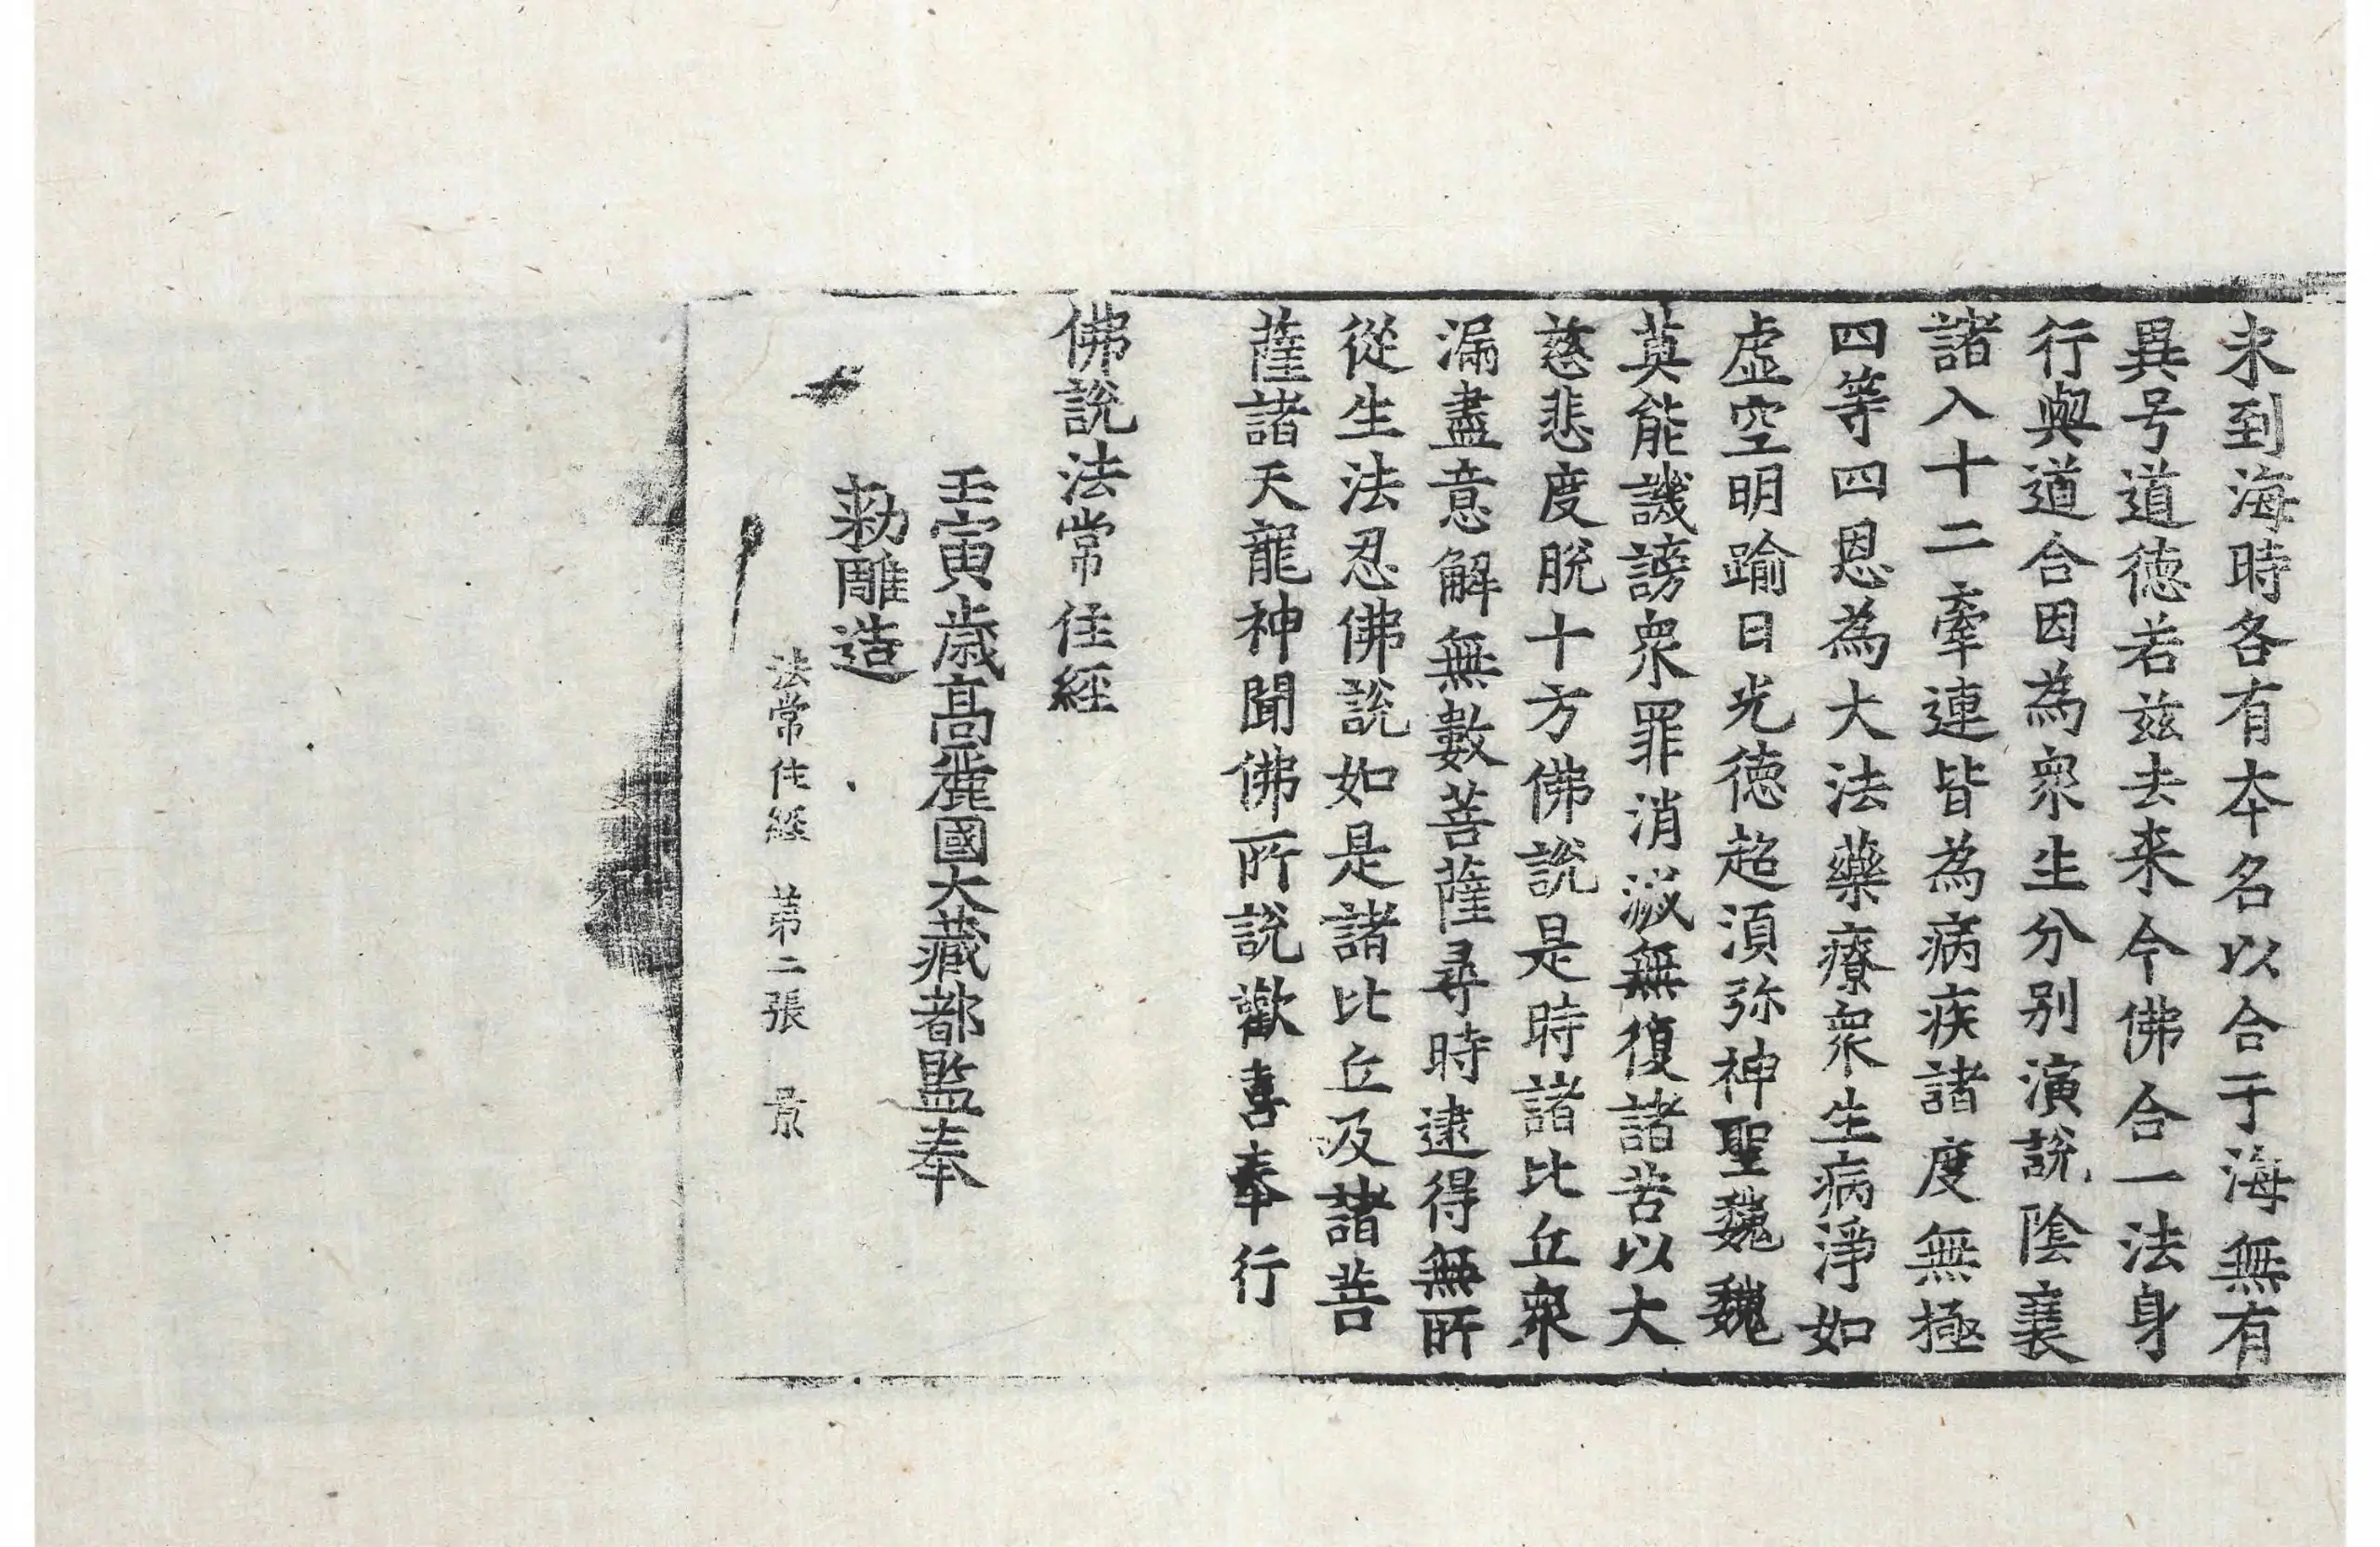 未到海時各有本名以合于海無有
異号道德若兹去来今佛合一法身
行與道合因為衆生分别演說陰蓑
諸入十二牽連皆為病疾諸度無極
四等四恩為大法藥療衆生病淨如
虛空明踰日光德超湏弥神聖巍巍
莫能譏謗衆罪消滅無復諸苦以大
慈悲度脫十方佛說是時諸比丘衆
漏盡意解無數菩薩尋時逮得無所
從生法忍佛說如是諸比丘及諸菩
薩諸天龍神聞佛所說歡喜奉行
佛說法常住經
壬寅歲高麗國大藏都監奉
勑雕造
法常住經 第二張 景